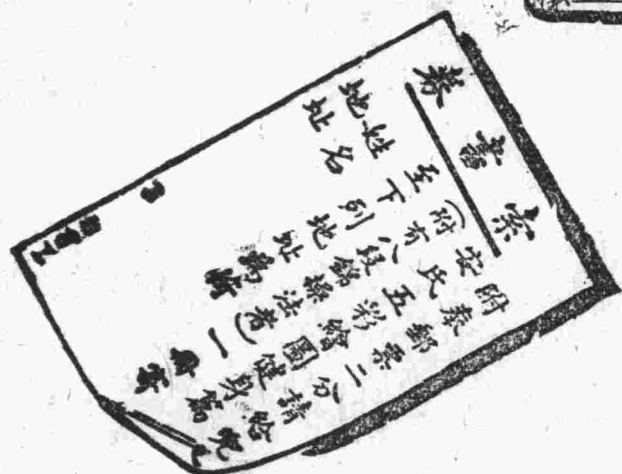 索書券
附奉郵票二分請
安氏五彩繪圖健身
(附有八段錦操法者)一
至下列地址
姓名
地址